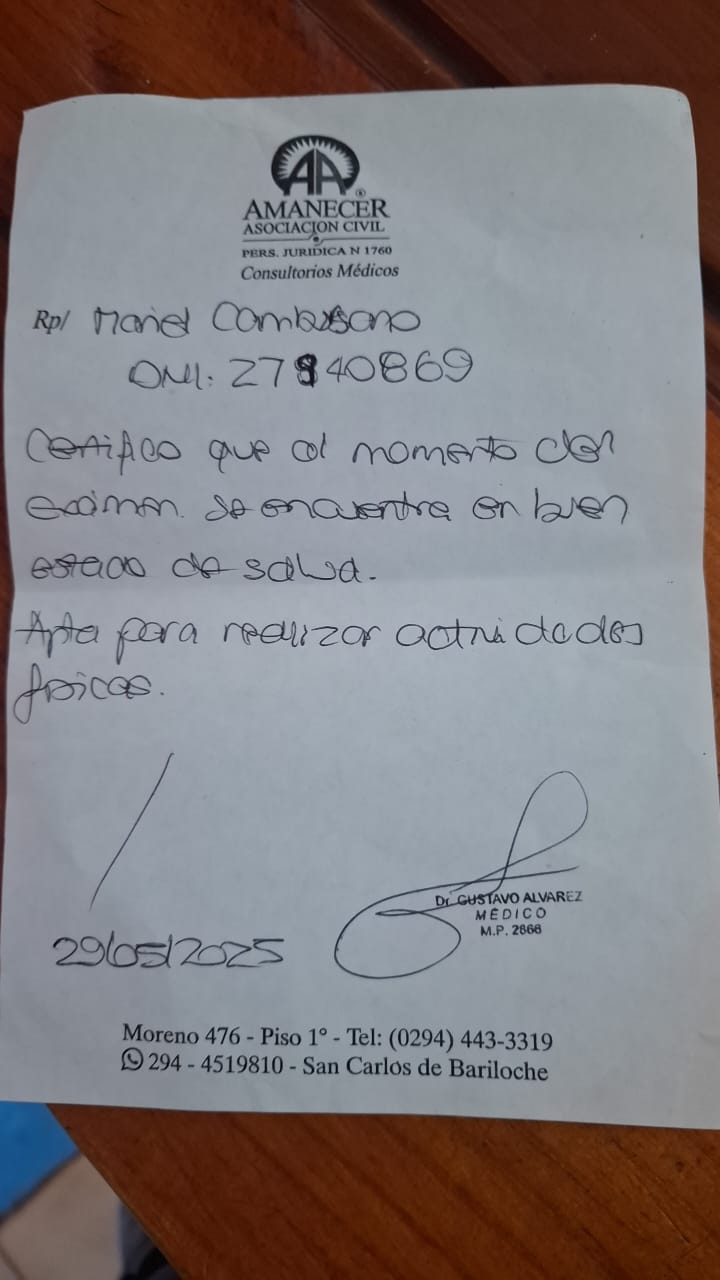 AA
AMANECER
ASOCIACION CIVIL
PERS. JURIDICA N 1760
Consultorios Médicos
Rp/ Mariel
DNI: 27940869
Certifico que al momento del
exámen. se encuentra en buen
estado de salud.
Apta para realizar actividades
físicas.
29/05/2025
Dr. GUSTAVO ALVAREZ
MÉDICO
M.P. 2666
Moreno 476 - Piso 1° - Tel: (0294) 443-3319
294 - 4519810 - San Carlos de Bariloche